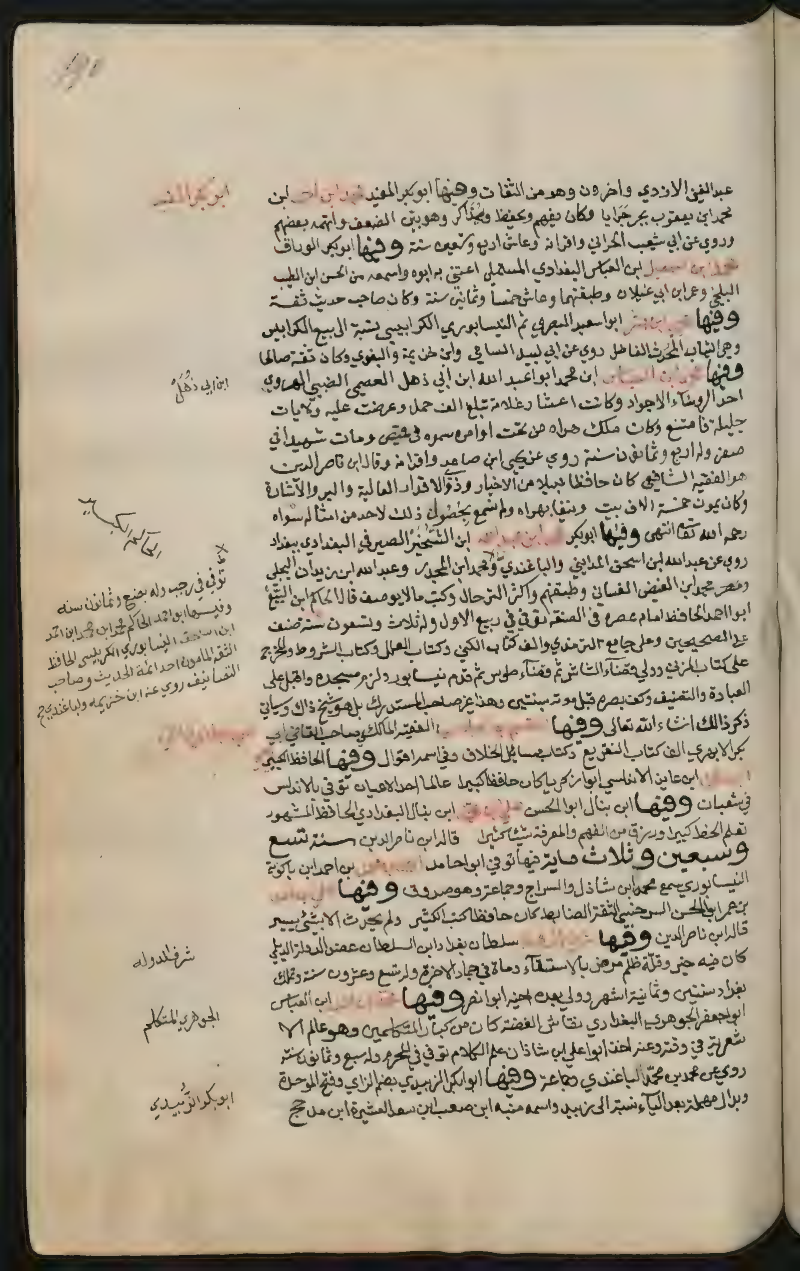 عبد الغني الازدي واخرون وهو من الثقات وفيها ابو بكر المفيد محمد ابن احمد ابن
محمد ابن يعقوب بجرجرايا وكان يفهم ويحفظ ويذاكر وهو بين الضعف واتهمه بعضهم
وروي عن ابي شعيب الحراني واقرانه وعاش اربعا وتسعين سنة وفيها ابو بكر الوراق
محمد ابن اسمعيل ابن العباس البغدادي المستملي اعتني به ابوه واسمعه من الحسن ابن الطيب
البلخي وعمر ابن ابي غيلان وطبقتهما وعاش خمسا وثمانين سنة وكان صاحب حديث ثقة
وفيها محمد ابن بشر ابو سعيد البصري ثم النيسابوري الكرابيسي نسبة الى بيع الكرابيس
وهي الثياب المحدث الفاضل روي عن ابي لبيد السامي وابن خزيمة والبغوي وكان ثقة صالحا
وفيها محمد ابن العباس ابن محمد ابو عبد الله ابن ابي ذهل العصمي الضبي الهروي
احد الرؤساء الاجواد وكانت اعشار غلاته تبلغ الف حمل وعرضت عليه ولايات
جليلة فامتنع وكان ملك هراه من تحت اوامره سموه في قميص ومات شهيدا في
صفر وله اربع وثمانون سنة روي عن يحيى ابن صاعد واقرانه وقال ابن ناصر الدين
هو الفقيه الشافعي كان حافظا نبيلا من الاخبار وذو الاقدار العالية والبر والآثار
وكان يمون خمسة الاف بيت وينفق بهراه ولم نسمع بحصول ذلك لاحد من امثاله سواه
رحمه الله تعالى انتهى وفيها ابو بكر محمد ابن عبد الله ابن الشخير الصيرفي البغدادي ببغداد
روي عن عبد الله ابن اسحق المدايني والباغندي ومحمد ابن المجدر وعبد الله ابن زيدان البجلي
ومحمد ابن الفيض الغساني وطبقتهم واكثر الترحال وكتب ما لا يوصف قال الحاكم ابن البيع
ابو احمد الحافظ امام عصره في الصنعة توفي في ربيع الاول وله ثلاث وتسعون سنة صنف
على الصحيحين وعلى جامع الترمذي والف كتاب الكنى وكتاب العلل وكتاب الشروط والمخرج
على كتاب المزني وولي قضاء الشاش ثم قضاء طوس ثم قدم نيسابور ولزم مسجده واقبل على
العبادة والتصنيف وكف بصره قبل موته بسنتين وهذا غير صاحب المستدرك بل هو شيخ ذاك وسياتي
ذكر ذالك انشاء الله تعالى وفيها الفقيه المالكي صاحب القاضي ابي
بكر الابهري الف كتاب التفريع وكتاب مسايل الخلاف وفي اسمه اقوال وفيها الحافظ
ابن عايذ الاندلسي ابو زكريا كان حافظا كبيرا عالما احد الاعيان توفي بالاندلس
في شعبان وفيها ابن بنال ابو الحسن ابن بنال البغدادي الحافظ المشهور
تعلم الحفظ كبيرا ورزق من الفهم والمعرفة شيئا كثيرا قاله ابن ناصر الدين سنة تسع
وسبعين وثلاث ماية فيها توفي ابو احامد ابن احمد ابن باكوية
النيسابوري سمع محمد ابن شاذل والسراج وجماعة وهو صدوق وفيها
بن عمر ابو الحسن السرخسي الثقة الصالح كان حافظا كتب الكثير ولم يحدث الا بشئ يسير
قاله ابن ناصر الدين وفيها شرف الدوله سلطان بغداد ابن السلطان عضد الدولة الديلي
كان فيه خير وقلة ظلم مرض بالاستسقاء ومات في جماد الاخرة وله تسع وعشرون سنة وتملك
بغداد سنتين وثمانية اشهر وولي بعده اخيه ابو نصر وفيها ابن العباس
ابو جعفر الجوهري البغدادي نقاش الفضة كان من كبار المتكلمين وهو عالم الا
شعرية في وقته وعنه اخذ ابو علي ابن شاذان علم الكلام توفي في المحرم وله سبع وثمانون سنة
روي عن محمد بن محمد الباغندي وجماعة وفيها ابو بكر الزبيدي بضم الزاي وفتح الموحدة
وبدال مهملة بعد الياء نسبة الى زبيد واسمه منبه ابن صعب ابن سعد العشيرة ابن مذحج
ابو بكر المفيد
ابن ابي ذهل
الحاكم الكبير
توفي في رجب وله بضع وثمانون سنه
وفيها ابو احمد الحاكم محمد ابن محمد ابن احمد
ابن اسحق النيسابوري الكرابيسي الحافظ
الثقة المامون احد ائمة الحديث وصاحب
التصانيف روي عن ابن خزيمه والباغندي
شرف الدوله
الجوهري المتكلم
ابو بكر الزبيدي